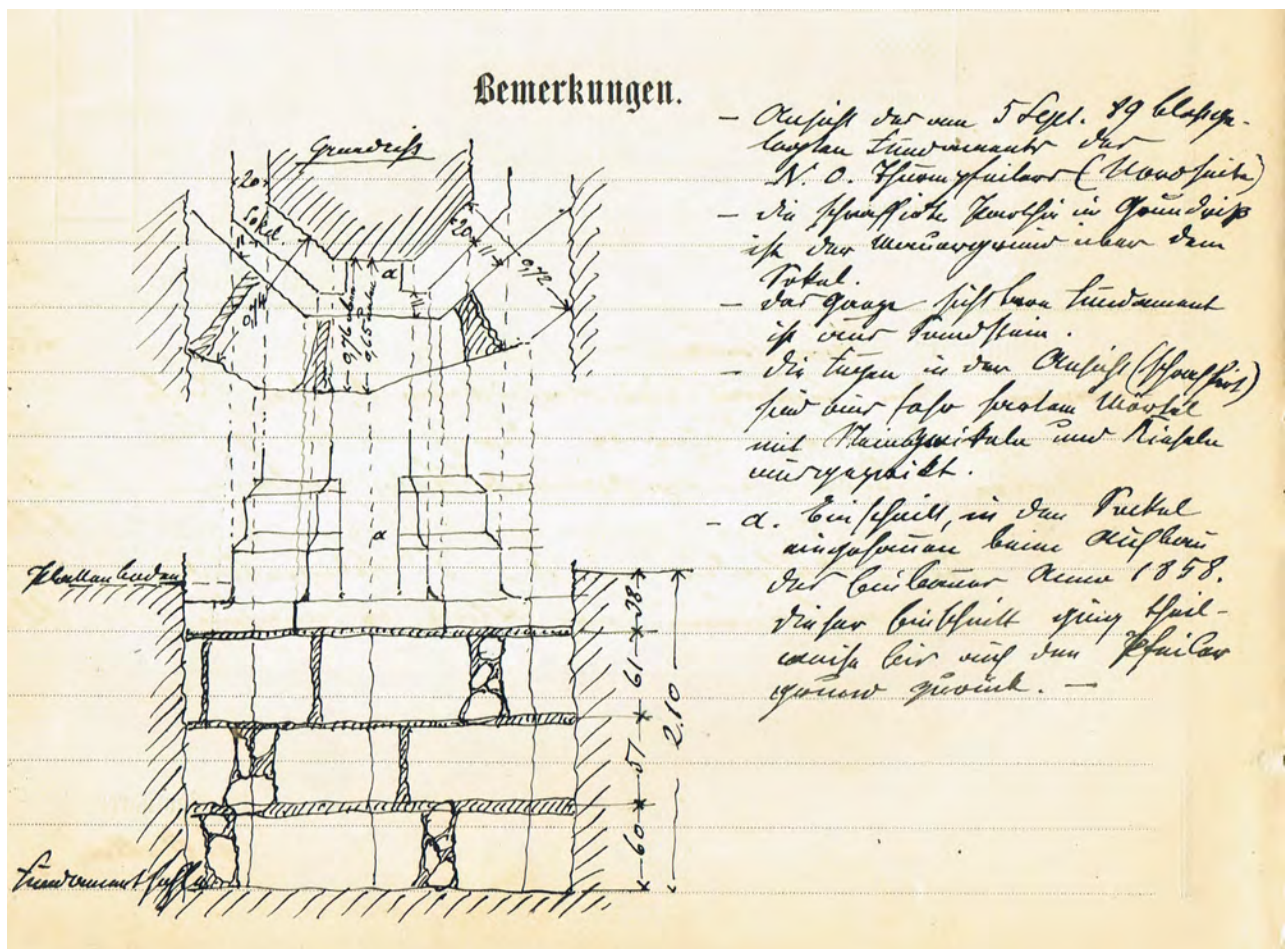 Bemerkungen.
Grundriß
20
Sokel.
11
0,74
0,76 oben
0,65 unten
α
11
20
11
0,72
α
Plattenboden
38
61
51
60
2.10
Fundamentsohle
- Ansicht des am 5 Sept. 89 blosge-
legten Fundaments des
N. O. Thurmpfeilers (Nordseite)
- die schraffirte Parthie in Grundriß
ist der Mauergrund über dem
Sokel.
- das ganze sichtbare Fundament
ist aus Sandstein.
- die Fugen in der Ansicht (schraffirt)
sind aus sehr hartem Mörtel
mit Steinzwikeln und Kieseln
ausgezwikt.
- α. Einschnitt, in den Sockel
eingehauen beim Aufbau
der Einbauer Anno 1858.
dieser Einschnitt ging theil-
weise bis auf den Pfeiler
zurück. —